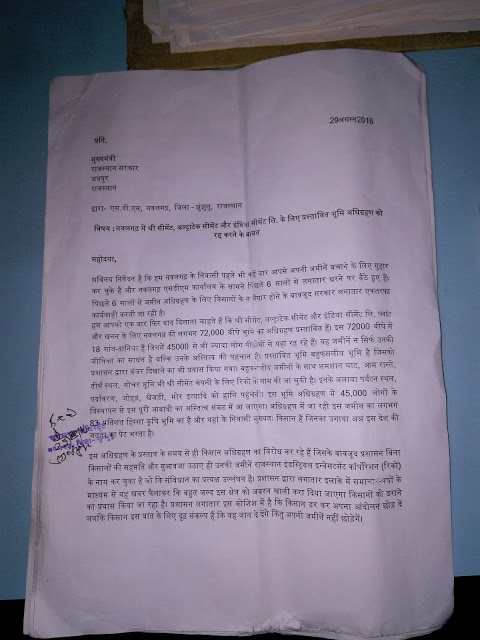 29अगस्त2016
प्रति,
मुख्यमंत्री
राजस्थान सरकार
जयपुर
राजस्थान
द्वारा- एस.डी.एम, नवलगढ़, जिला - झुंझुनू, राजस्थान
विषय : नवलगढ़ में श्री सीमेंट, अल्ट्राटेक सीमेंट और इंडिया सीमेंट लि. के लिए प्रस्तावित भूमि अधिग्रहण को
रद्द करने के बाबत
महोदया,
सविनय निवेदन है कि हम नवलगढ़ के निवासी पहले भी कई बार आपसे अपनी जमीनें बचाने के लिए गुहार
कर चुके है और नवलगढ़ एसडीएम कार्यालय के सामने पिछले 6 सालों से लगातार धरने पर बैठे हुए है।
पिछले 6 सालों से जमीन अधिग्रहण के लिए किसानों के न तैयार होने के बावजूद सरकार लगातार एकतरफा
कार्यवाही करती जा रही है।
हम आपको एक बार फिर याद दिलाना चाहते हैं कि श्री सीमेंट, अल्ट्राटेक सीमेंट और इंडिया सीमेंट लि. प्लांट
और खनन के लिए नवलगढ़ की लगभग 72,000 बीघे भूमि का अधिग्रहण प्रस्तावित है। इस 72000 बीघे में
18 गांव-ढाणियां है जिनमें 45000 से भी ज्यादा लोग पीढ़ीयों से यहा रह रहे है। यह जमीनें न सिर्फ उनकी
जीविका का साधन है बल्कि उनके अस्तित्व की पहचान है। प्रस्तावित भूमि बहुफसलीय भूमि है जिसको
प्रशासन द्वारा बंजर दिखाने का भी प्रयास किया गया। बहुफसलीय जमीनों के साथ शमशान घाट, आम रास्ते,
तीर्थ स्थल, गोचर भूमि भी श्री सीमेंट कंपनी के लिए रिको के नाम की जा चुकी है। इनके अलावा पर्यटन स्थल,
पर्यावरण, जोहड़, खेजड़ी, मोर इत्यादि को हानि पहुंचेगी। इस भूमि अधिग्रहण में 45,000 लोगों के
विस्थापन से इस पूरी आबादी का अस्तित्व संकट में आ जाएगा। अधिग्रहण में जा रही इस जमीन का लगभग
83 प्रतिशत हिस्सा कृषि भूमि का है और यहां के निवासी मुख्यतः किसान हैं जिनका उगाया अन्न इस देश की
जनता का पेट भरता है।
इस अधिग्रहण के प्रस्ताव के समय से ही किसान अधिग्रहण का विरोध कर रहे हैं जिसके बावजूद प्रशासन बिना
किसानों की सहमति और मुआवजा उठाए ही उनकी जमीनें राजस्थान इंडस्ट्रियल इन्वेसटमेंट कॉर्पोरेशन (रिको)
के नाम कर चुका है जो कि संविधान का प्रत्यक्ष उल्लंघन है। प्रशासन द्वारा लगातार इलाके में समाचार-पत्रों के
माध्यम से यह खबर फैलाकर कि बहुत जल्द इस क्षेत्र को जबरन खाली करा दिया जाएगा किसानों को डराने
का प्रयास किया जा रहा है। प्रशासन लगातार इस कोशिश में है कि किसान डर कर अपना आंदोलन छोड़ दें
जबकि किसान इस बात के लिए दृढ़ संकल्प हैं कि वह जान दे देंगे किंतु अपनी जमीनें नहीं छोड़ेगें।